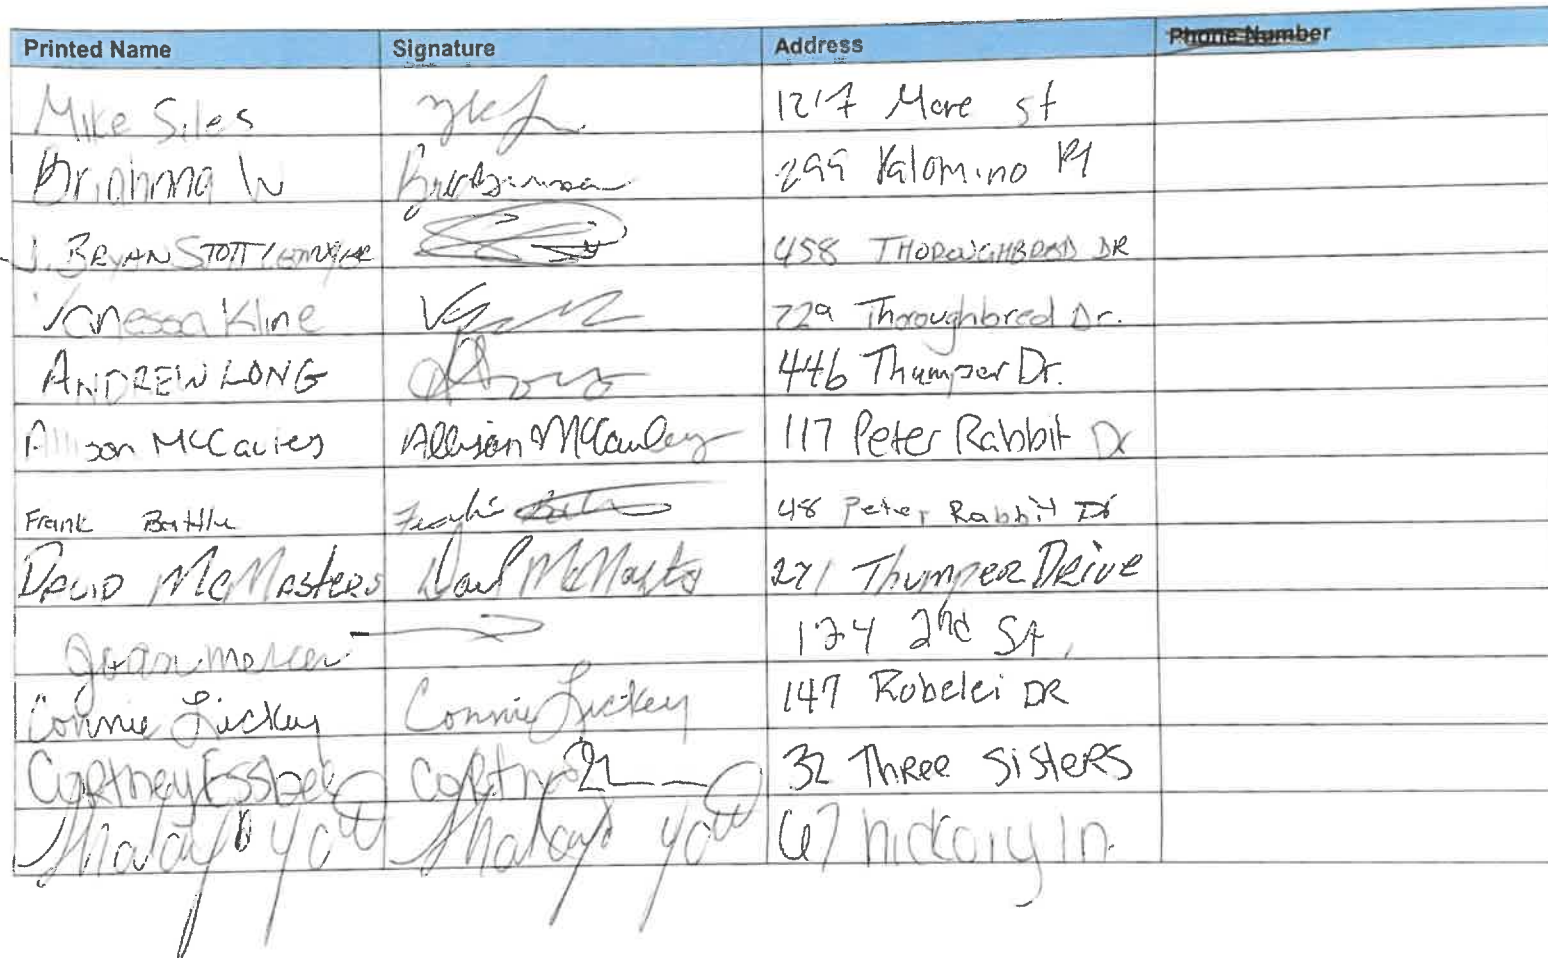 Printed Name Signature Address Phone Number
Mike Siles 1217 More st
Brianna W 299 Palomino Pl
J. BRYAN STOTTLEMYER 458 THOROUGHBRED DR
Vanessa Kline 229 Thoroughbred Dr.
ANDREW LONG 446 Thumper Dr.
Allison McCauley Allison McCauley 117 Peter Rabbit Dr
Frank Battle 48 Peter Rabbit Dr
DAVID McMasters David McMasters 271 Thumper DRive
Joann Mercer 134 2nd St.
Connie Lickey Connie Lickey 147 Robelei DR
CoRTney 32 ThRee SisteRs
67 hickory ln.